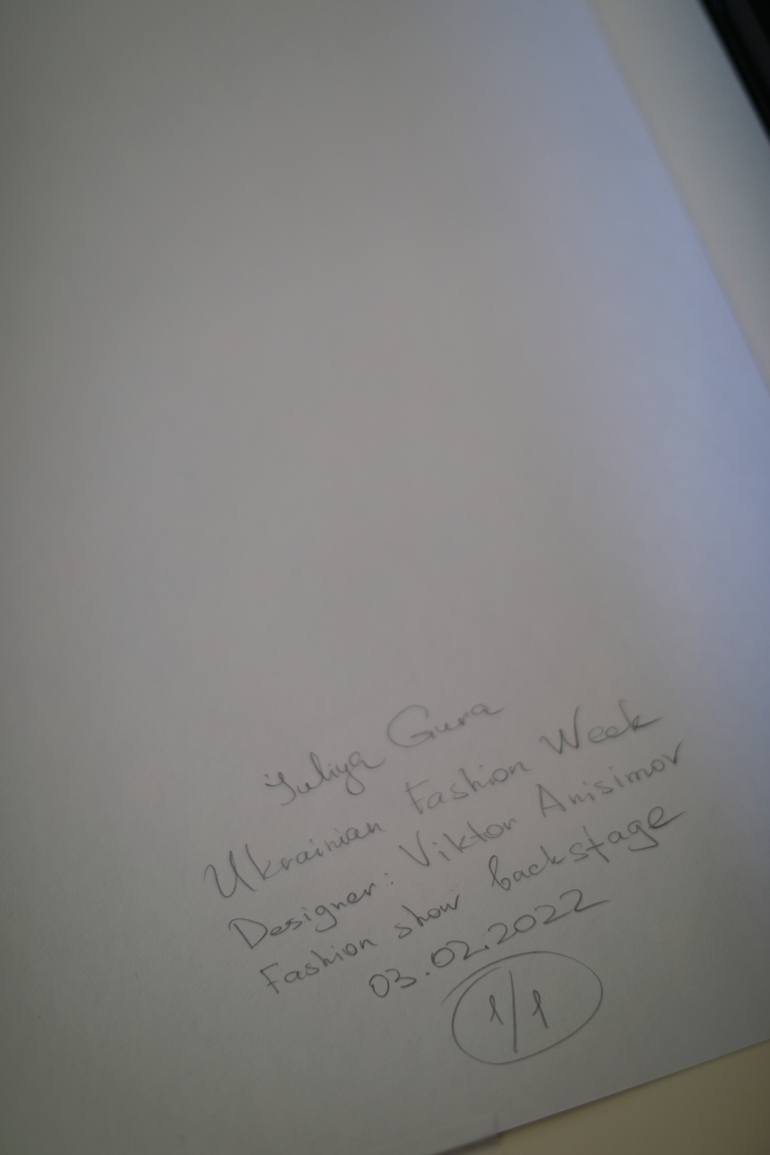 Iuliya Gura
Ukrainian Fashion Week
Designer: Viktor Anisimov
Fashion show backstage
03.02.2022
1/1